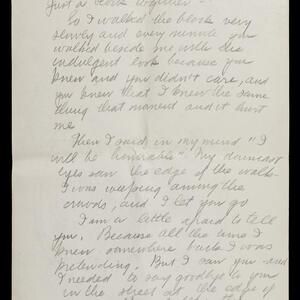 Just a look together -
So I walked the block very
slowly and every minute you
walked beside me with the
indulgent look because you
knew and you didn't care, and
you knew that I knew the same
thing that moment and it hurt
me
Then I said in my mind "I
will be honorable" My downcast
eyes saw the edge of the walk -
I was weeping among the
crowds, and I let you go
I am a little afraid to tell
you. Because all the time I
knew somewhere back I was
pretending. But I saw you and
I needed to say goodbye to you
in the street at the edge of